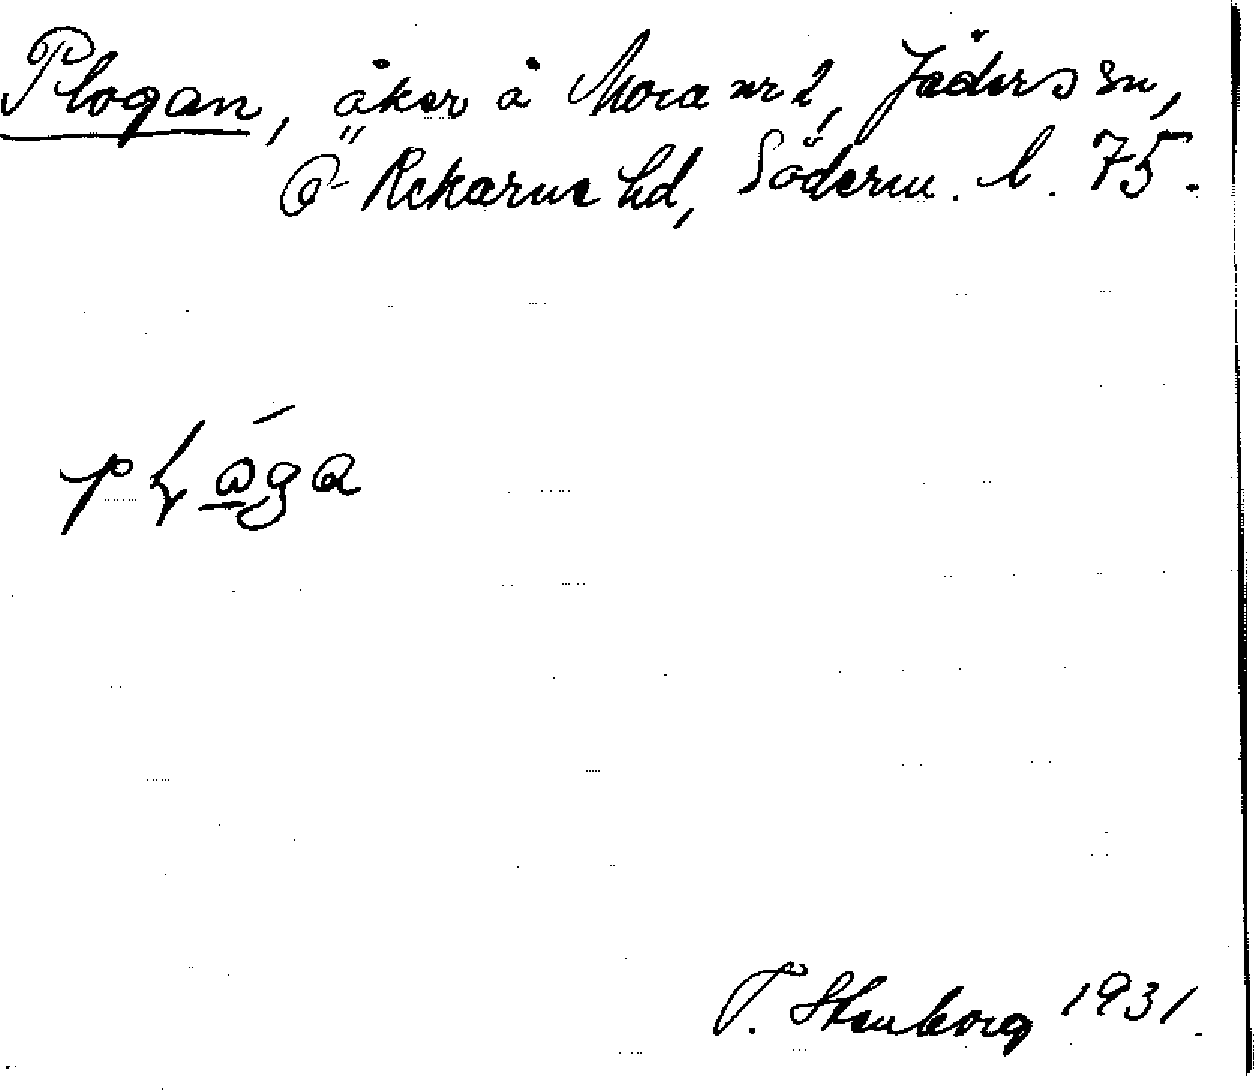 Plogan, åker å Mora nr 2, Jäders sn,
Ö Rekarne hd, Söderm. l. 75.
T. Stenborg 1931.